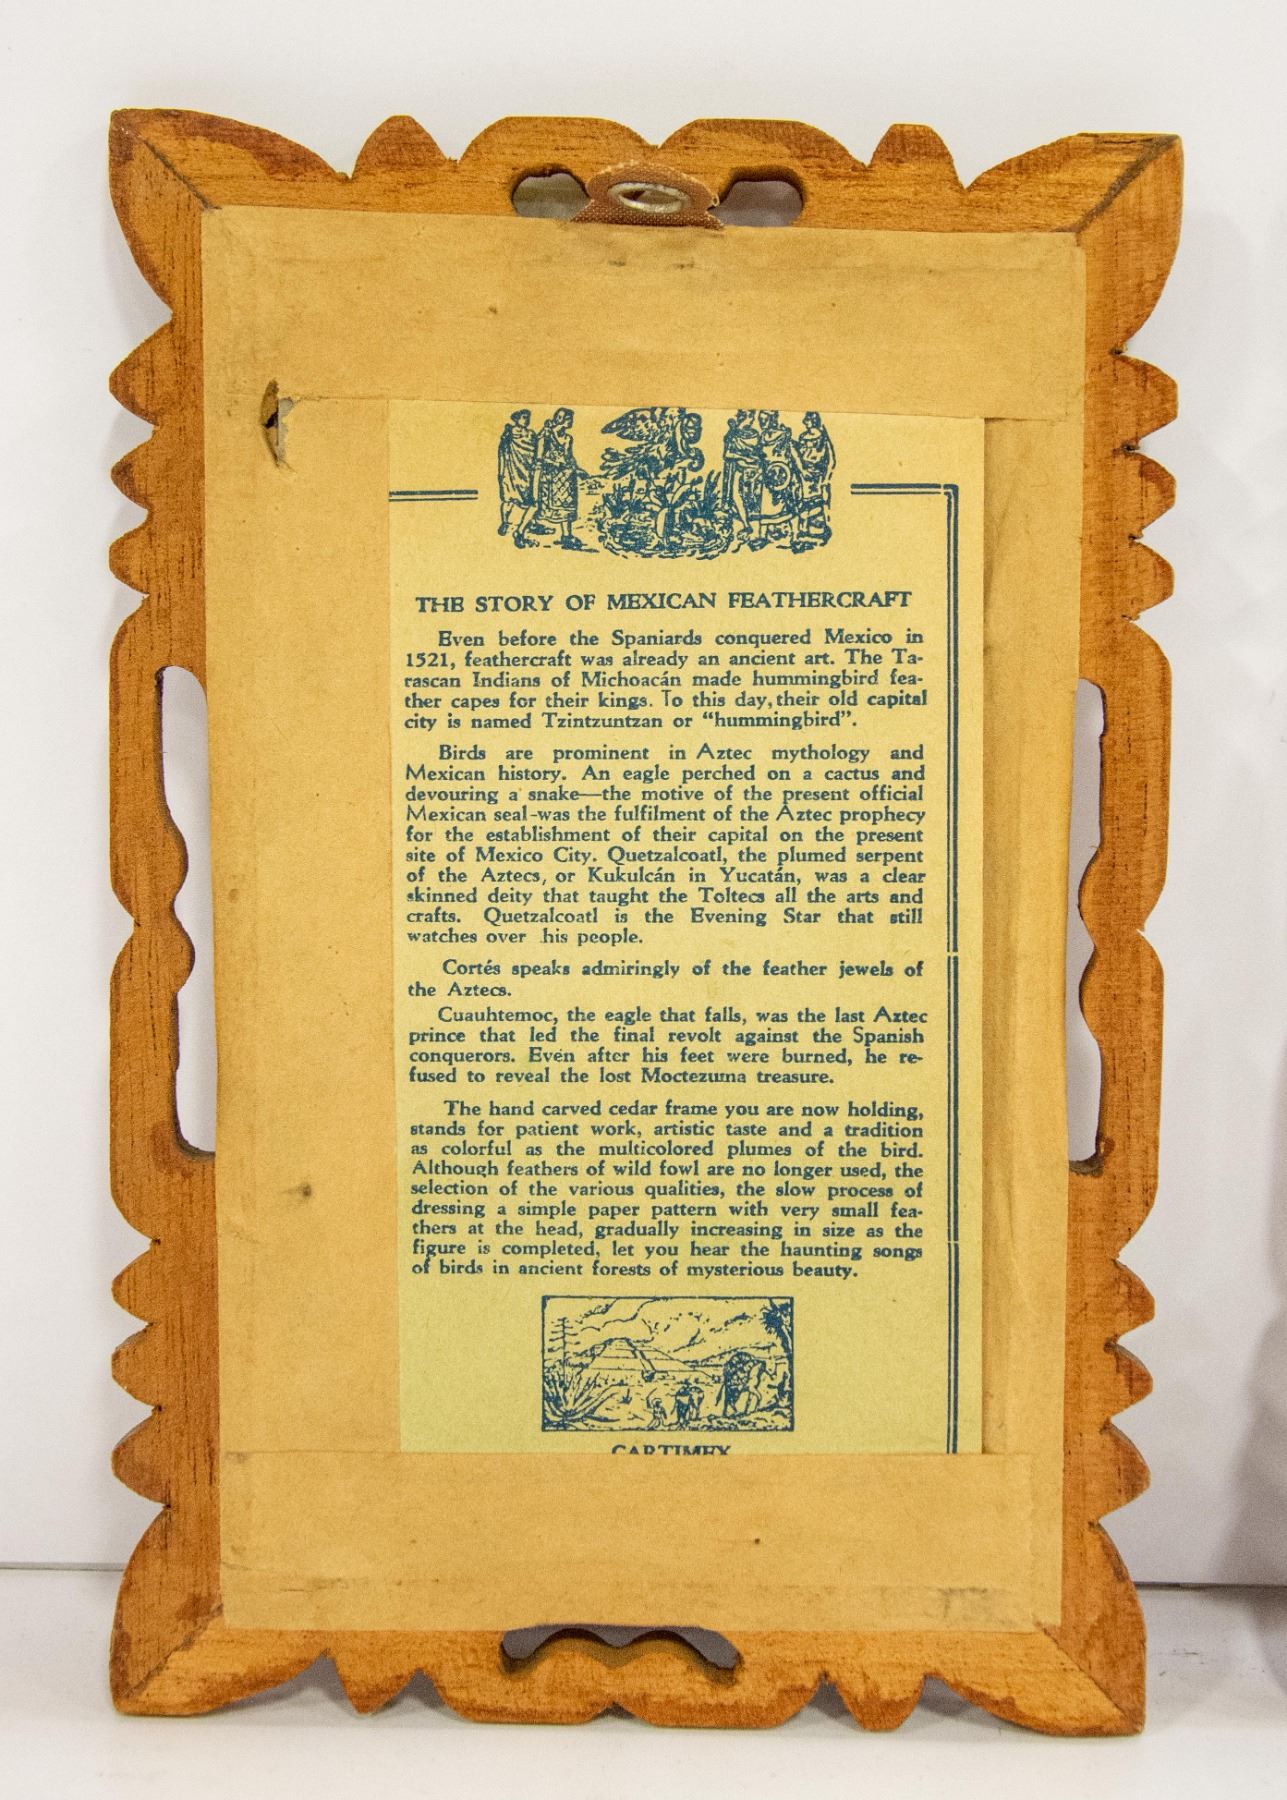 THE STORY OF MEXICAN FEATHERCRAFT
Even before the Spaniards conquered Mexico in
1521, feathercraft was already an ancient art. The Ta-
rascan Indians of Michoacán made hummingbird fea-
ther capes for their kings. To this day, their old capital
city is named Tzintzuntzan or “hummingbird”.
Birds are prominent in Aztec mythology and
Mexican history. An eagle perched on a cactus and
devouring a snake—the motive of the present official
Mexican seal-was the fulfilment of the Aztec prophecy
for the establishment of their capital on the present
site of Mexico City. Quetzalcoatl, the plumed serpent
of the Aztecs, or Kukulcán in Yucatán, was a clear
skinned deity that taught the Toltecs all the arts and
crafts. Quetzalcoatl is the Evening Star that still
watches over his people.
Cortés speaks admiringly of the feather jewels of
the Aztecs.
Cuauhtemoc, the eagle that falls, was the last Aztec
prince that led the final revolt against the Spanish
conquerors. Even after his feet were burned, he re-
fused to reveal the lost Moctezuma treasure.
The hand carved cedar frame you are now holding,
stands for patient work, artistic taste and a tradition
as colorful as the multicolored plumes of the bird.
Although feathers of wild fowl are no longer used, the
selection of the various qualities, the slow process of
dressing a simple paper pattern with very small fea-
thers at the head, gradually increasing in size as the
figure is completed, let you hear the haunting songs
of birds in ancient forests of mysterious beauty.
CARTIMEX